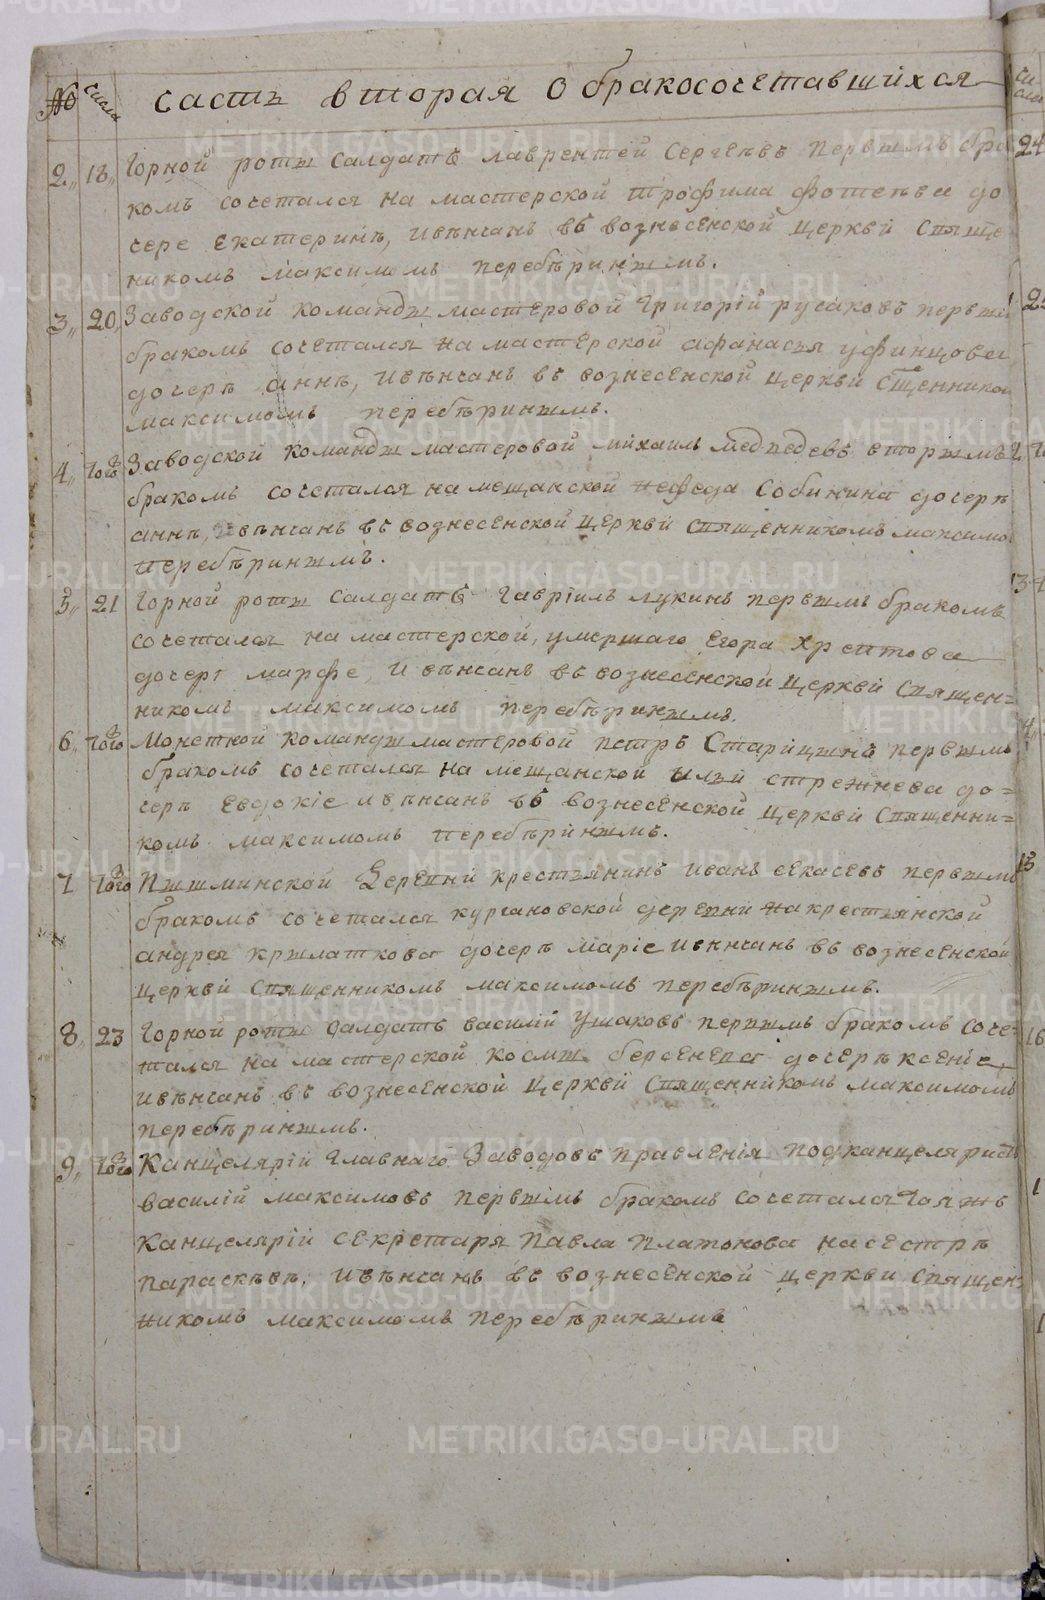 № Числа Часть вторая о бракосочетавшихся
2,, 18,, Горной роты салдатъ лаврентей Сергѣевъ первымъ бра
комъ сочетался на мастерской трофима фотеева до
чере екатеринѣ, ивѣнчанъ въ вознесенской церквй свяще
никомъ максимомъ перебѣринымъ.
3,, 20,, Заводской команды мастеровой григорій русаковъ первым
бракомъ сочетался на мастерской афанасья уфинцова
дочерѣ аннѣ, ивѣнчанъ въ вознесенской церквй сщенником
максимомъ перебѣринымъ.
4,, того Заводской команды мастеровой михаилъ медведевъ вторымъ
бракомъ сочетался на мещанской нефеда Собинина дочерѣ
аннѣ, ивѣнчанъ въ вознесенской церквй священникомъ максимо
перебѣринымъ.
5,, 21 Горной роты салдатъ гавріилъ лукинъ первымъ бракомъ
сочетался на мастерской, умершаго Егора Хрептова
дочерѣ марфе, и вѣнчанъ въ вознесенской церквй священ=
никомъ максимомъ перебѣринымъ.
6,, того Монетной команды мастеровой петръ Старицынъ первымъ
бракомъ сочетался на мещанской ильи стрежнева до=
черѣ Евдокіе ивѣнчанъ въ вознесенской церквй священни=
комъ максимомъ перебѣринымъ.
7 того Пышминской Деревни крестьянинъ иванъ секасевъ первымъ
бракомъ сочетался кургановской деревни на крестьянской
андрея крылаткова дочерѣ маріе ивѣнчанъ въ вознесенской
церквй священникомъ максимомъ перебѣринымъ.
8,, 23 Горной роты салдатъ василій ушаковъ первымъ бракомъ соче=
тался на мастерской космы берсенева дочерѣ ксеніе,
ивѣнчанъ въ вознесенской церквй священникомъ максимомъ
перебѣринымъ.
9,, того Канцелярій главнаго Заводовъ правленія подканцелярист
василій максимовъ первымъ бракомъ сочетался тояжъ
Канцелярій секретаря павла платонова насестрѣ
параскѣвѣ, ивѣнчанъ въ вознесенской церкви священ=
никомъ максимомъ перебѣринымъ
METRIKI.GASO-URAL.RU